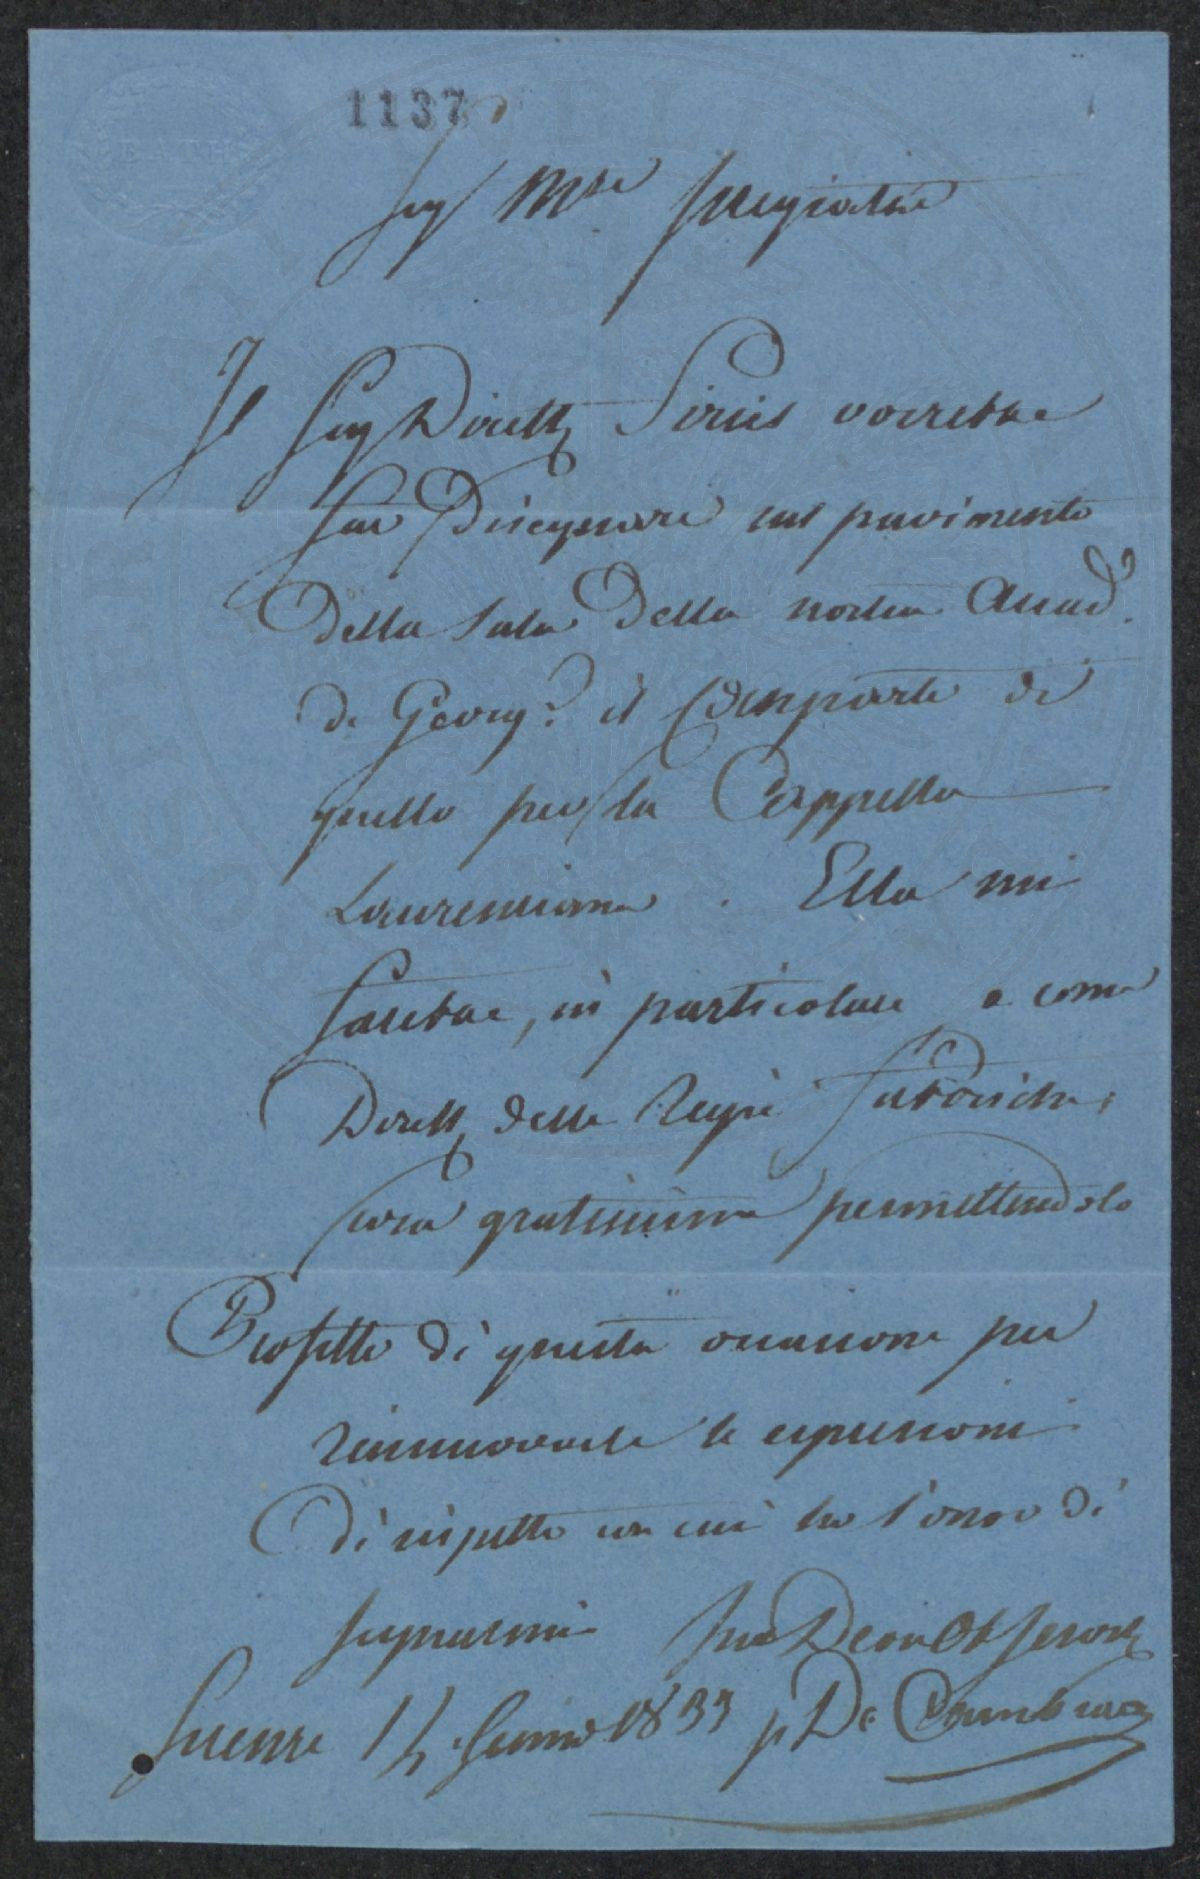 BATH
1137
Sig Mre
Il Sig Dirett Siries vorrebbe
far disegnare sul pavimento
della Sala della nostra Accad.
di Georg? il Comparto di
quello per la Cappella
Laurenziana. Ella mi
farebbe, in particolare e come
Dirett delle Regie Fabbriche,
cosa gratissima permettendolo
Profitto di questa occasione per
rinnovarle le espressioni
di rispetto con cui ho l'onore di
segnarmi Suo Devmo Obb Servit
Firenze 14 1833 p De Cambray